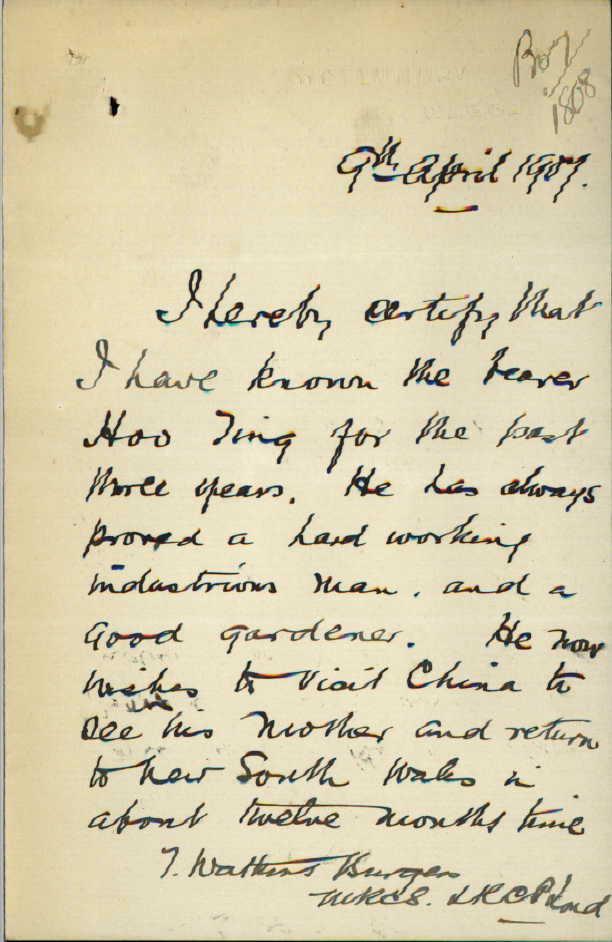 Born
in
1868
9th April 1907.
I hereby certify that
I have known the bearer
Hoo Ting for the past
three years. He has always
proved a hard working
industrious man. and a
good gardener. He now
wishes to visit China to
see his Mother and return
to New South Wales in
about twelve months time
T. Watkins Burgess
MRCS. LRCP Lond